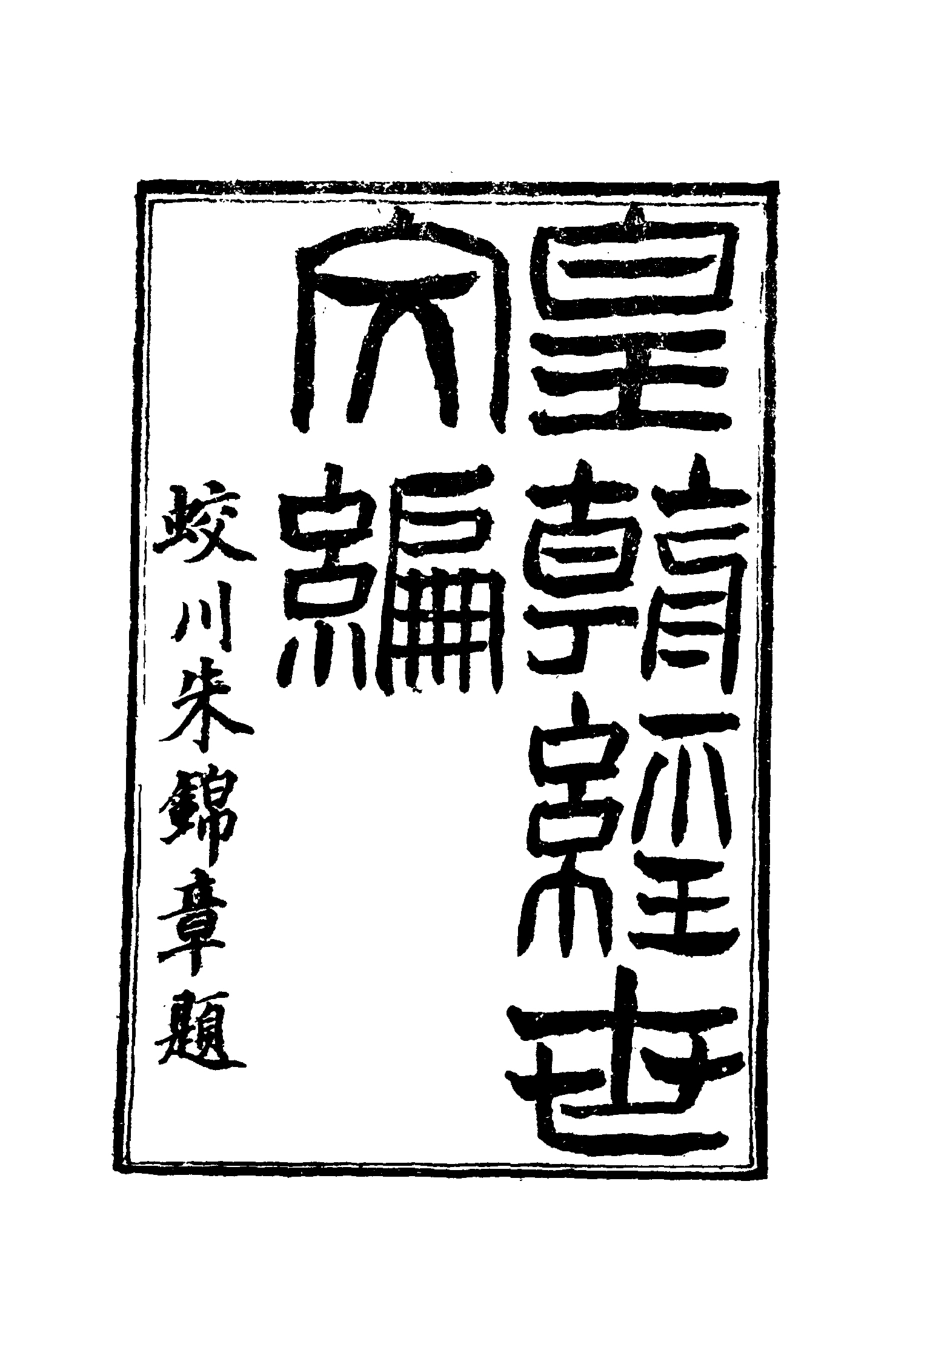 皇朝經世
文編
蛟川朱錦章題